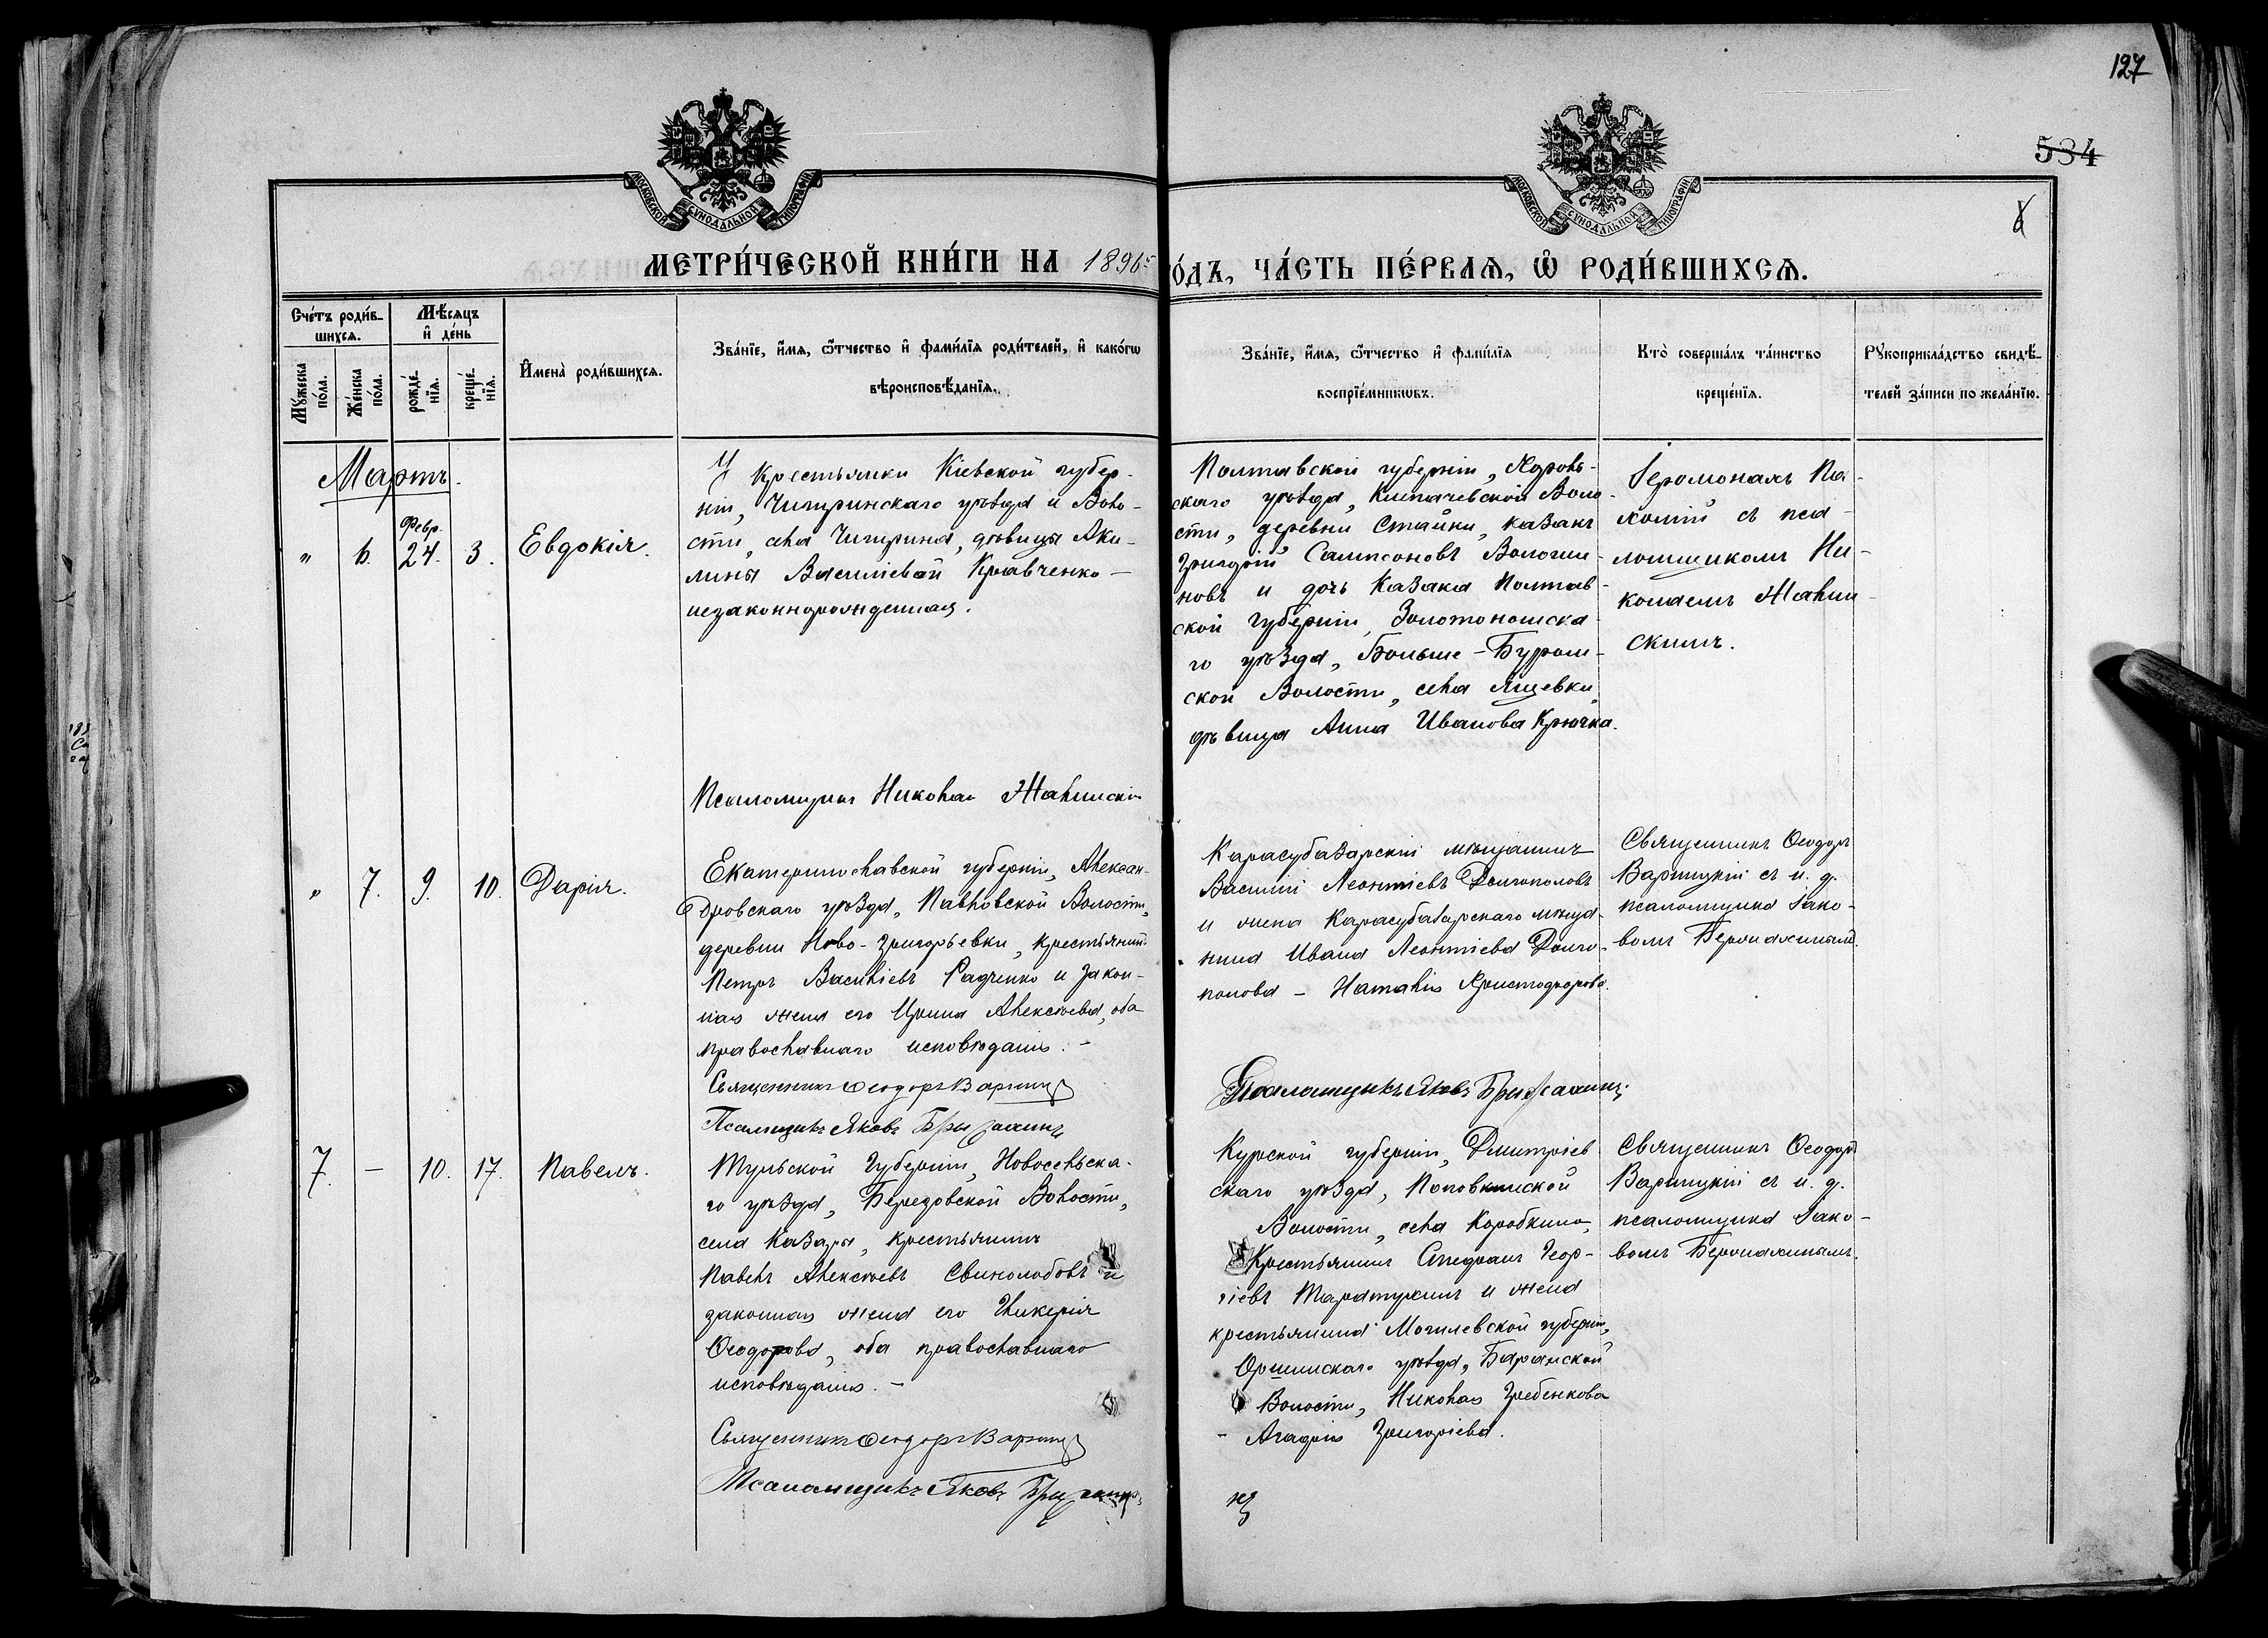 127
534
6
МОСКОВСКОЙ СУНОДАЛЬНОЙ ТИПОГРАФIИ
МОСКОВСКОЙ СУНОДАЛЬНОЙ ТИПОГРАФIИ
МЕТРИ́ЧЕСКОЙ КНИ́ГИ НА 1896
О́ДЪ, ЧА́СТЬ ПЕ́РВАѦ, Ѡ҆ РОДИ́ВШИХСѦ.
Сче́тъ роди́в-
шихсѧ.
Мꙋ́жеска
по́ла.
Же́нска
по́ла.
Мѣ́сяцъ
и҆ де́нь
рожде́-
нїѧ.
креще́-
нїѧ.
И҆мена̀ роди́вшихсѧ.
Зва́нїе, и҆́мѧ, ѻ҆́тчество и҆ фами́лїѧ роди́телей, и҆ како́гѡ
вѣроисповѣ́данїѧ.
Зва́нїе, и҆́мѧ, ѻ҆́тчество и҆ фами́лїѧ
воспрїе́мникѡвъ.
Кто̀ соверша́лъ та́инство
креще́нїѧ.
Рꙋкоприкла́дство свидѣ́-
телей за́писи по жела́нїю.
Мартъ.
" 6. Февр. 24. 3. Евдокія.
У Крестьянки Кіевской губер-
ніи, Чигиринскаго уѣзда и Воло-
сти, села Чигирина, дѣвицы Аки-
лины Василіевой Кравченко —
незаконнорожденная.
Полтавской губерніи, Хороль-
скаго уѣзда, Волo-
сти, деревни Стайки, казакъ
Григорій Сампсоновъ Волоши-
новъ и дочь Казака Полтав-
ской губерніи, Золотоношска-
го уѣзда, Больше-Буром-
ской Волости, села Лщевки,
дѣвица Анна Иванова Крючка.
Іеромонахъ Па-
хомій съ пса-
ломщикомъ Ни-
колаемъ Жалин-
скимъ.
Псаломщикъ Николай Жалинскій
" 7. 9. 10. Дарія.
Екатеринославской губерніи, Алексан-
дровскаго уѣзда, Павловской Волости,
деревни Ново-Григорьевки, крестьянинъ
Петръ Василіевъ Радченко и закон-
ная жена его Ирина Алексѣева, оба
православнаго исповѣданія. –
Карасубазарскій мѣщанинъ
Василій Леонтіевъ Долгополовъ
и жена Карасубазарскаго мѣща-
нина Ивана Леонтіева Долго-
полова – Наталія Христофорова.
Священникъ Ѳеодоръ
Варницкій съ и. д.
псаломщика Іако-
вомъ
Священникъ Ѳеодоръ
Псаломщикъ Яковъ
Псаломщикъ Яковъ
7. – 10. 17. Павелъ.
Тульской Губерніи, Новосельска-
го уѣзда, Березовской Волости,
села Казары, крестьянинъ
Павелъ Алексѣевъ Свинолобовъ и
законная жена его Гликерія
Ѳеодорова, оба православнаго
исповѣданія. –
Курской губерніи, Дмитріев
скаго уѣзда, Поповкинской
Волости, села Коробкино,
Крестьянинъ Стефанъ Геор-
гіевъ Таратухинъ и жена
крестьянина Могилевской губерніи,
Оршинскаго уѣзда, Баранской
Волости, Николая Гребенкова
– Агафія Григоріева.
Священникъ Ѳеодоръ
Варницкій съ и. д.
псаломщика Іако-
вомъ
Священникъ Ѳеодоръ
Псаломщикъ Яковъ